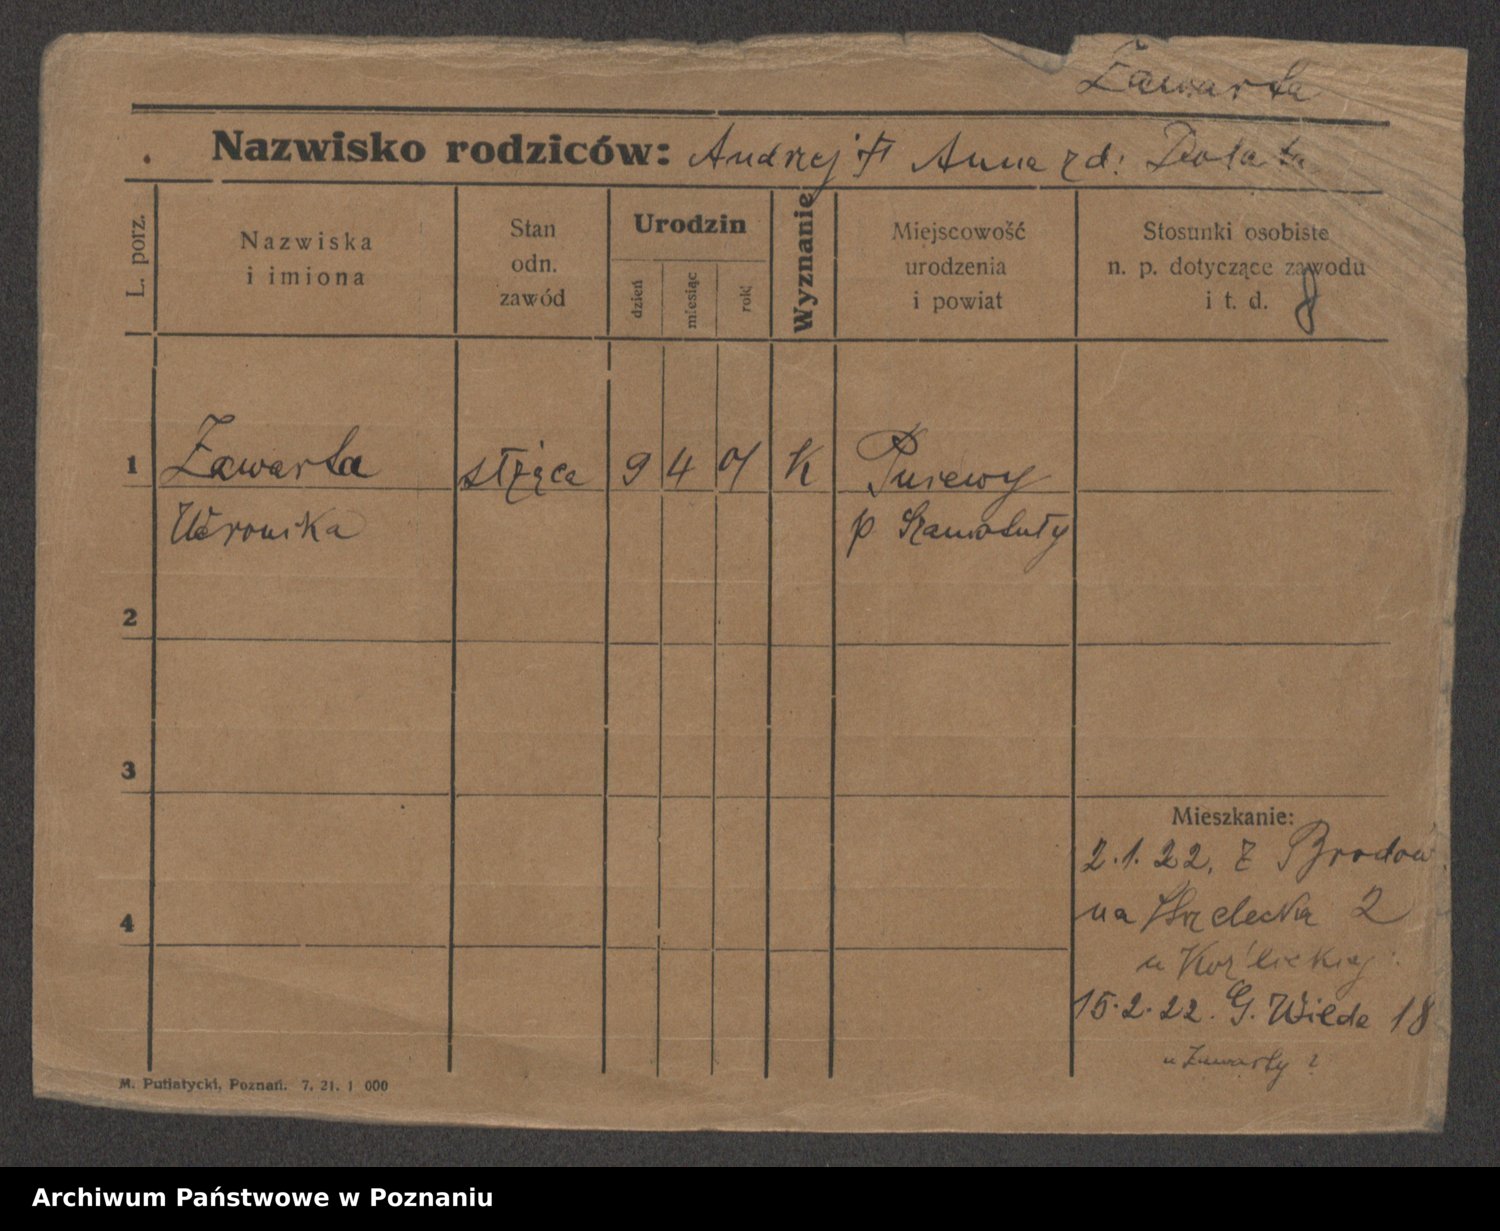 Zawarta
Nazwisko rodziców: Andrzej i Anna zd. Dolata
L. porz.
Nazwiska
i imiona
Stan
odn.
zawód
Urodzin
dzień
miesiąc
rok
Wyznanie
Miejscowość
urodzenia
i powiat
Stosunki osobiste
n. p. dotyczące zawodu
i t. d.
8
1 Zawarta służąca 9 4 01 K Pniewy
Weronika p Szamotuły
2
3
4
Mieszkanie:
2.1.22. z Brodow
na Strzelecka 2
u Koźlickiej
15.2.22. G. Wilda 18
u Zawarty
M. Putiatycki, Poznań. 7. 21. 1 000
Archiwum Państwowe w Poznaniu